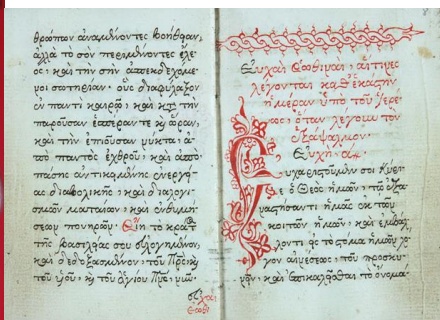 θρώπων ἀναμένοντες βοήθειαν,
ἀλλὰ τὸ σὸν περιμένοντες ἔλε
ος, καὶ τὴν σὴν ἀπεκδεχόμε
νοι σωτηρίαν. οὓς διαφύλαξον
ἐν παντὶ καιρῷ, καὶ κτ τὴν
παροῦσαν ἑσπέραν τε κ ὥραν,
καὶ τὴν ἐπιοῦσαν νύκτα, ἀ
πὸ παντὸς ἐχθροῦ, καὶ ἀπὸ
πάσης ἀντικειμένης ἐνεργεί
ας διαβολικῆς, καὶ διαλογι
σμῶν ματαίων, καὶ ἐνθυμή
σεων πονηρῶν. Εἴη τὸ κράτ
τῆς βασιλείας σου εὐλογημένον,
καὶ δεδοξασμένον, τοῦ Πρς κ
τοῦ υἱοῦ, κ τοῦ ἁγίου Πνς, νῦν
Εὐχαὶ Ἑωθιναὶ, αἵτινες
λέγονται καθ ἑκάστην
ἡμέραν ὑπὸ τοῦ ἱερέ
ως, ὅταν λέγομεν τὸν
ἑξάψαλμον.
Εὐχὴ α
Εὐχαριστοῦμέν σοι Κύρι
ε ὁ Θεὸς ἡμῶν, τῷ ἐξα
ναστήσαντι ἡμᾶς ἐκ τῶν
κοιτῶν ἡμῶν, καὶ ἐμβα
λόντι εἰς τὸ στόμα ἡμῶν λό
γον αἰνέσεως, τοῦ προσκυ
νεῖν, καὶ ἐπικαλεῖσθαι τὸ ὄνομα